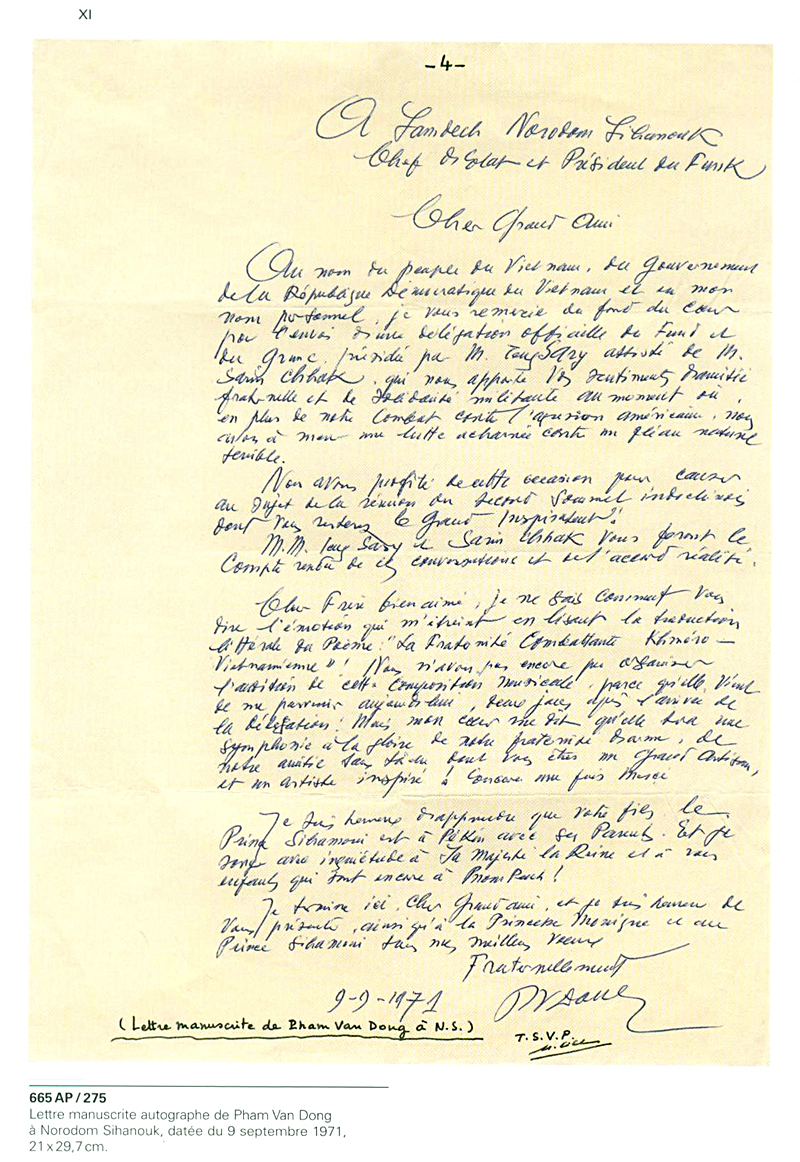 XI
-4-
A Samdech Norodom Sihanouk
Chef d'Etat et Président du Funk
Cher Grand Ami
Au nom du peuple du Vietnam, du Gouvernement
de la République Démocratique du Vietnam et en mon
nom personnel, je vous remercie du fond du cœur
pour l'envoi d'une délégation officielle du Funk et
du Grunc, présidée par M. Ieng Sary assisté de M.
Sarin Chhak, qui nous apporte Vos sentiments d'amitié
fraternelle et de solidarité militante au moment où,
en plus de notre combat contre l'agression américaine, nous
avons à mener une lutte acharnée contre un fléau naturel
terrible.
Nous avons profité de cette occasion pour causer
au sujet de la réunion du second Sommet indochinois
dont Vous resterez le Grand Inspirateur!
M.M. Ieng Sary et Sarin Chhak Vous feront le
Compte rendu de ces conversations et de l'accord réalisé.
Cher Frère bien aimé, je ne sais comment Vous
dire l'émotion qui m'étreint en lisant la traduction
littérale du Poème: "La Fraternité Combattante Khméro-
Vietnamienne"! Nous n'avons pas encore pu organiser
l'audition de cette Composition musicale, parce qu'elle Vient
de me parvenir aujourd'hui, deux jours après l'arrivée de
la délégation! Mais mon cœur me dit qu'elle sera une
symphonie à la gloire de notre fraternité d'arme, de
notre amitié dont Vous êtes un Grand Artisan,
et un artiste inspiré! Encore une fois Merci
Je suis heureux d'apprendre que votre fils le
Prince Sihamoni est à Pékin avec ses Parents. Et je
songe avec inquiétude à Sa Majesté la Reine et à vos
enfants qui sont encore à PnomPenh!
Je termine ici, Cher Grand ami, et je suis heureux de
Vous présenter, ainsi qu'à la Princesse Monique et au
Prince Sihamoni tous mes meilleurs vœux
Fraternellement
9-9-1971 PVDong
(Lettre manuscrite de Pham Van Dong à N.S.)
T.S.V.P.
665 AP / 275
Lettre manuscrite autographe de Pham Van Dong
à Norodom Sihanouk, datée du 9 septembre 1971,
21 x 29,7 cm.